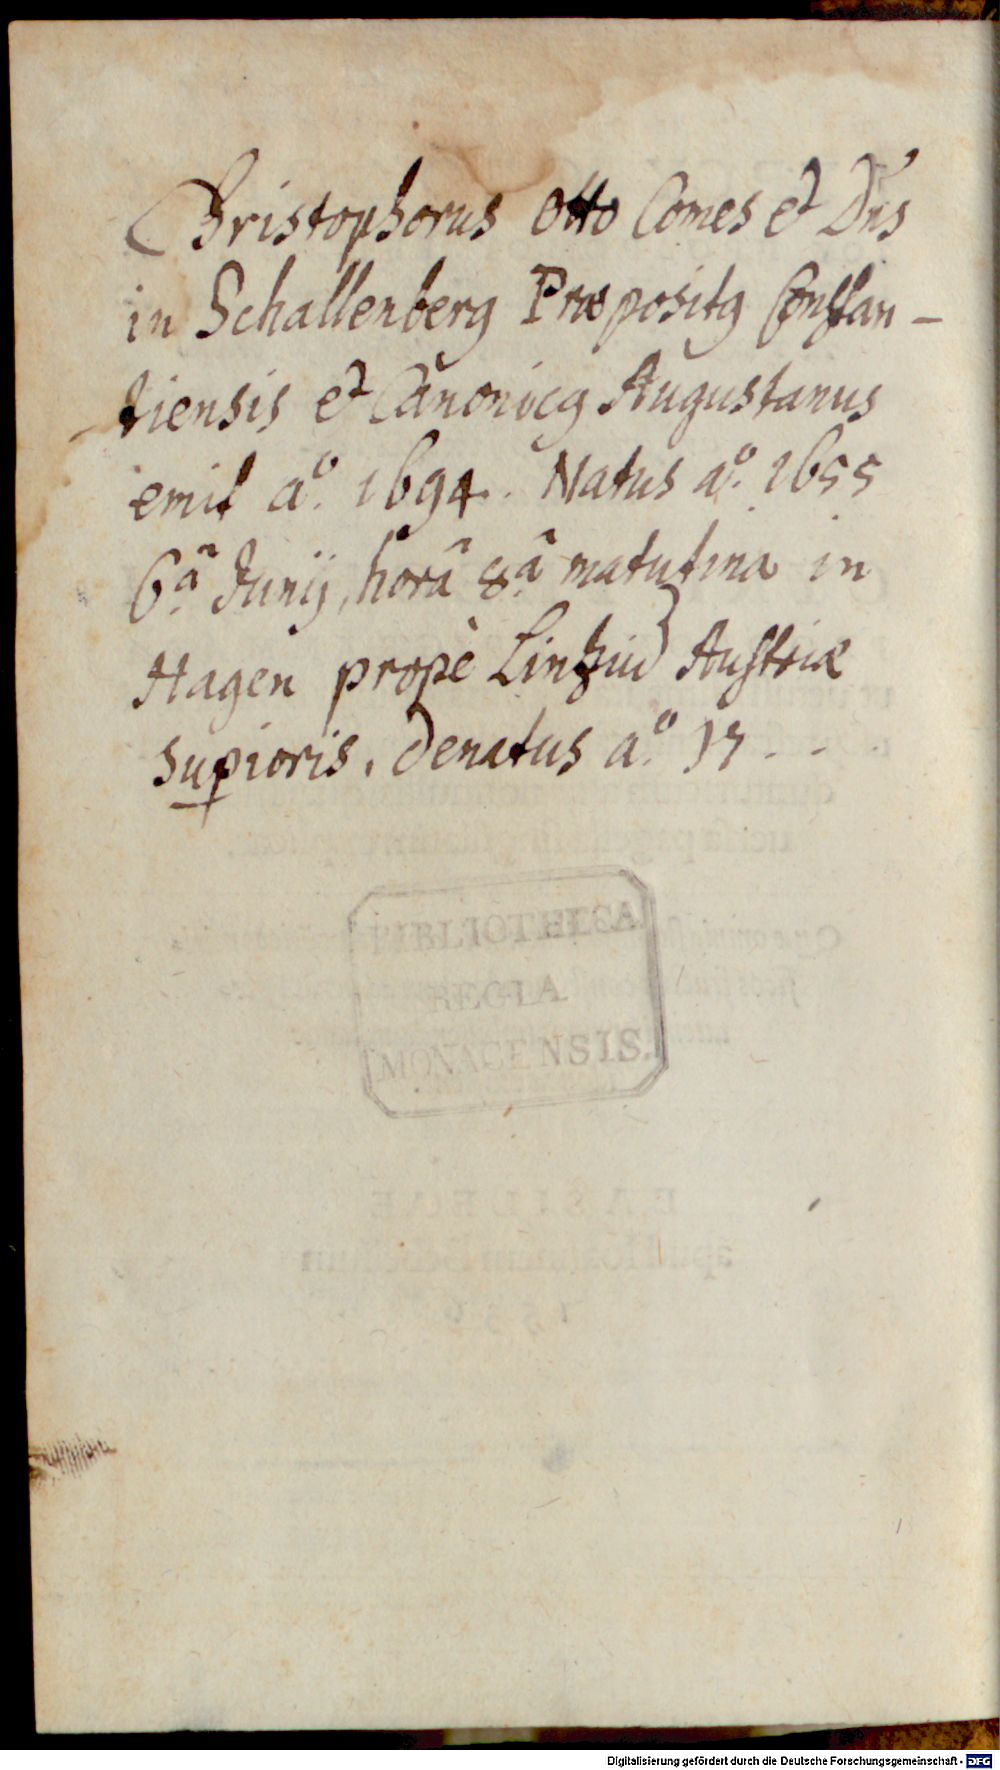 Christophorus Otto Comes et Dn̄s
in Schallenberg Præpositꝰ Constan-
tiensis et Canonicꝰ Augustanus
emit aͦ. 1694. Natus aͦ. 1655
6.â Junij, horâ 8.â matutina in
Hagen propè Lintziū Austriæ
suꝑioris. Denatus aͦ. 17 - -
BIBLIOTHECA
REGIA
MONACENSIS.
Digitalisierung gefördert durch die Deutsche Forschungsgemeinschaft - DFG